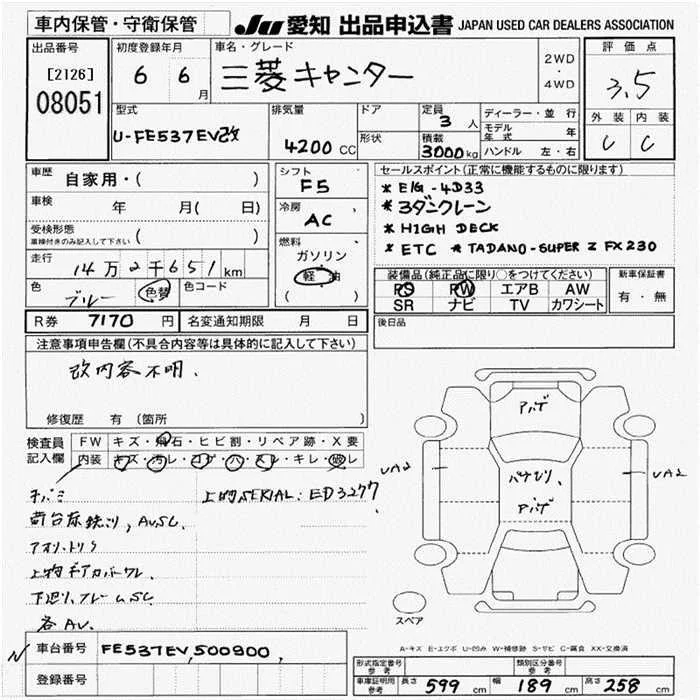 車内保管・守衛保管
JU 愛知 出品申込書 JAPAN USED CAR DEALERS ASSOCIATION
出品番号
[2126]
08051
初度登録年月
6 6 月
車名・グレード
三菱キャンター
2WD
・
4WD
評価点
3.5
外装 内装
C C
型式
U-FE537EV改
排気量
4200 CC
ドア
形状
定員
3 人
積載
3000 kg
ディーラー・並行
モデル年式 年
ハンドル 左・右
車歴
自家用・( )
車検 年 月( 日)
受検形態
車検付きのみ記入して下さい ( )
走行
14万2千651 km
色
ブルー 色替
色コード
シフト
F5
冷房
AC
燃料
ガソリン
軽油
( )
セールスポイント(正常に機能するものに限ります)
* E/G-4D33
* 3ダンクレーン
* HIGH DECK
* ETC * TADANO-SUPER Z FX230
装備品(純正品に限り○をつけてください)
PS PW エアB AW
SR ナビ TV カワシート
新車保証書
有・無
R券 7170 円
名変通知期限 月 日
後日品
注意事項申告欄(不具合内容等は具体的に記入して下さい)
改内容不明.
修復歴 有 (箇所 )
検査員記入欄
FW キズ・飛石・ヒビ割・リペア跡・X要
内装 キズ・汚レ・コゲ・穴・スレ・キレ・破レ
上物SERIAL: ED3277
荷台床銹リ, AV.SC.
アオリ.トリ
上物ギアカバーワレ.
下廻リ,フレームSC
各AV.
アバデ
UA2
UA2
アバデ
スペア
A-キズ E-エクボ U-凹み W-補修跡 S-サビ C-腐食 XX-交換済
N
車台番号 FE537EV,500900,
登録番号
形式指定番号
参考
類別区分番号
参考
車庫証明用
参考
長さ 599 cm 幅 189 cm 高さ 258 cm